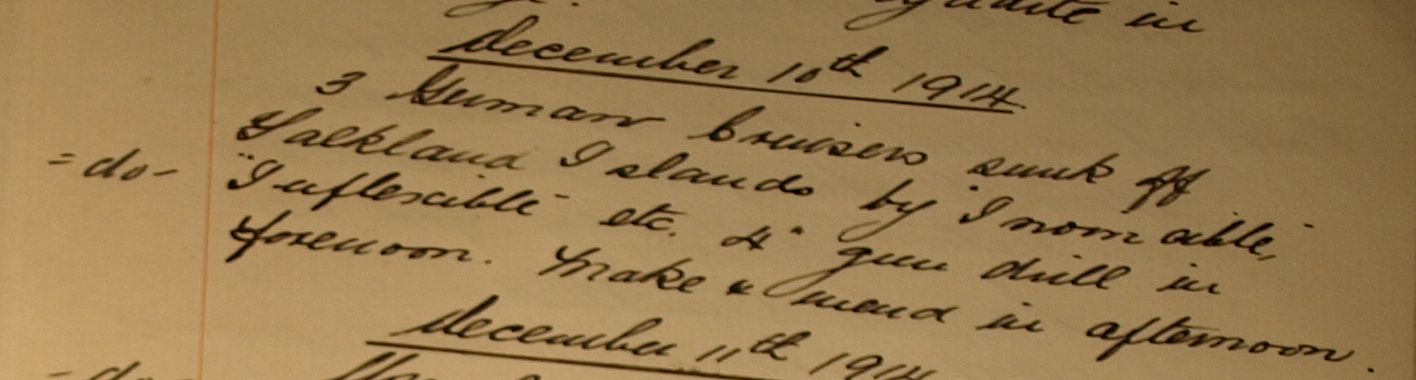 in
December 10th 1914.
3 German Cruisers sunk off
Falkland Islands by "Invincible,"
=do- "Inflexible" etc. 4" gun drill in
forenoon. Make & mend in afternoon.
December 11th 1914
- do